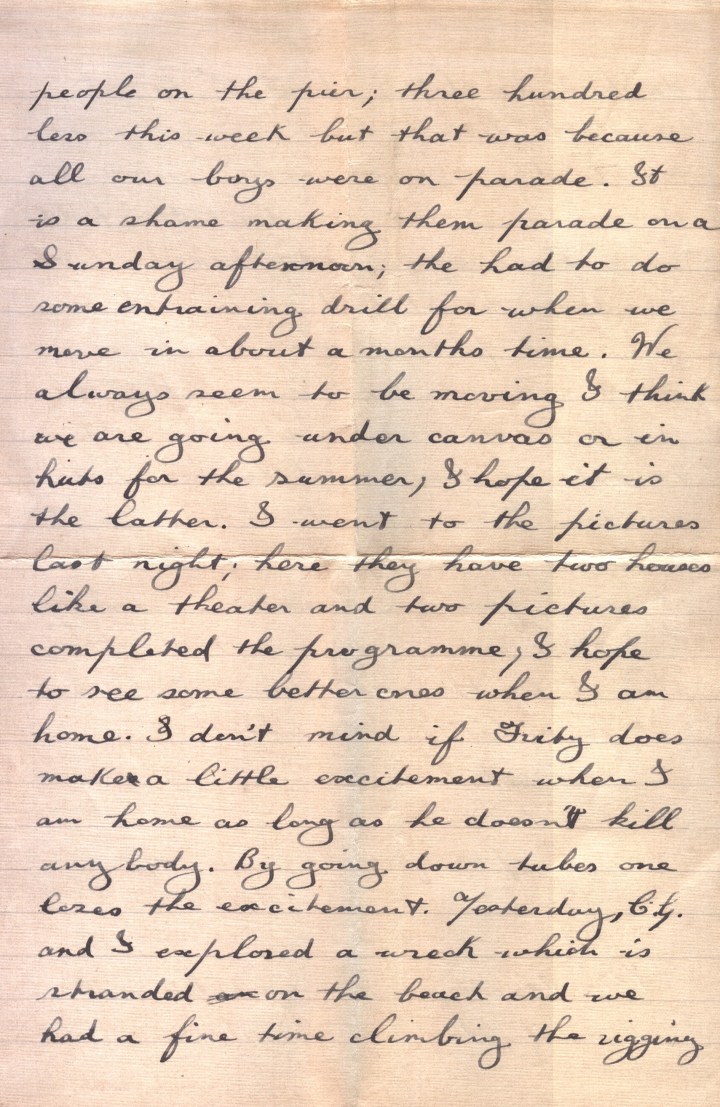 people on the pier; three hundred
less this week but that was because
all our boys were on parade. It
is a shame making them parade on a
Sunday afternoon; the had to do
some entraining drill for when we
move in about a months time. We
always seem to be moving I think
we are going under canvas or in
huts for the summer, I hope it is
the latter. I went to the pictures
last night; here they have two houses
like a theater and two pictures
completed the programme, I hope
to see some better ones when I am
home. I don't mind if Frity does
make a little excitement when I
am home as long as he doesn't kill
any body. By going down tubes one
loses the excitement. Yesterday, C.G.
and I explored a wreck which is
stranded on the beach and we
had a fine time climbing the rigging